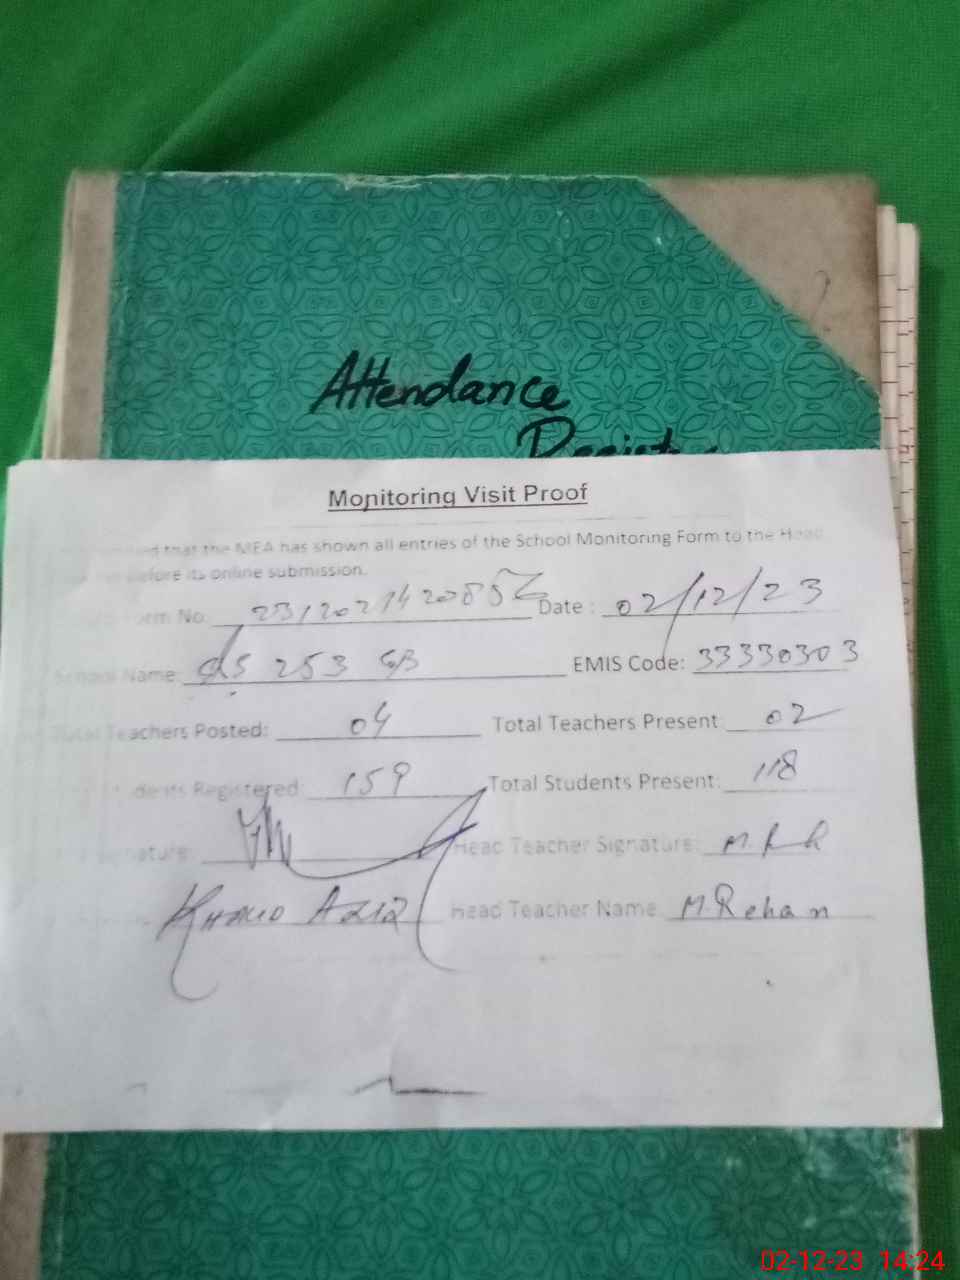 Attendance
Register
Monitoring Visit Proof
that the MEA has shown all entries of the School Monitoring Form to the Head
before its online submission.
Form No: Date : 02/12/23
School Name: 253 GB EMIS Code: 33330303
Total Teachers Posted: 04 Total Teachers Present: 02
Students Registered: 159 Total Students Present: 118
Signature: Head Teacher Signature: M.
Khalid Aziz Head Teacher Name M.Rehan
02-12-23 14:24